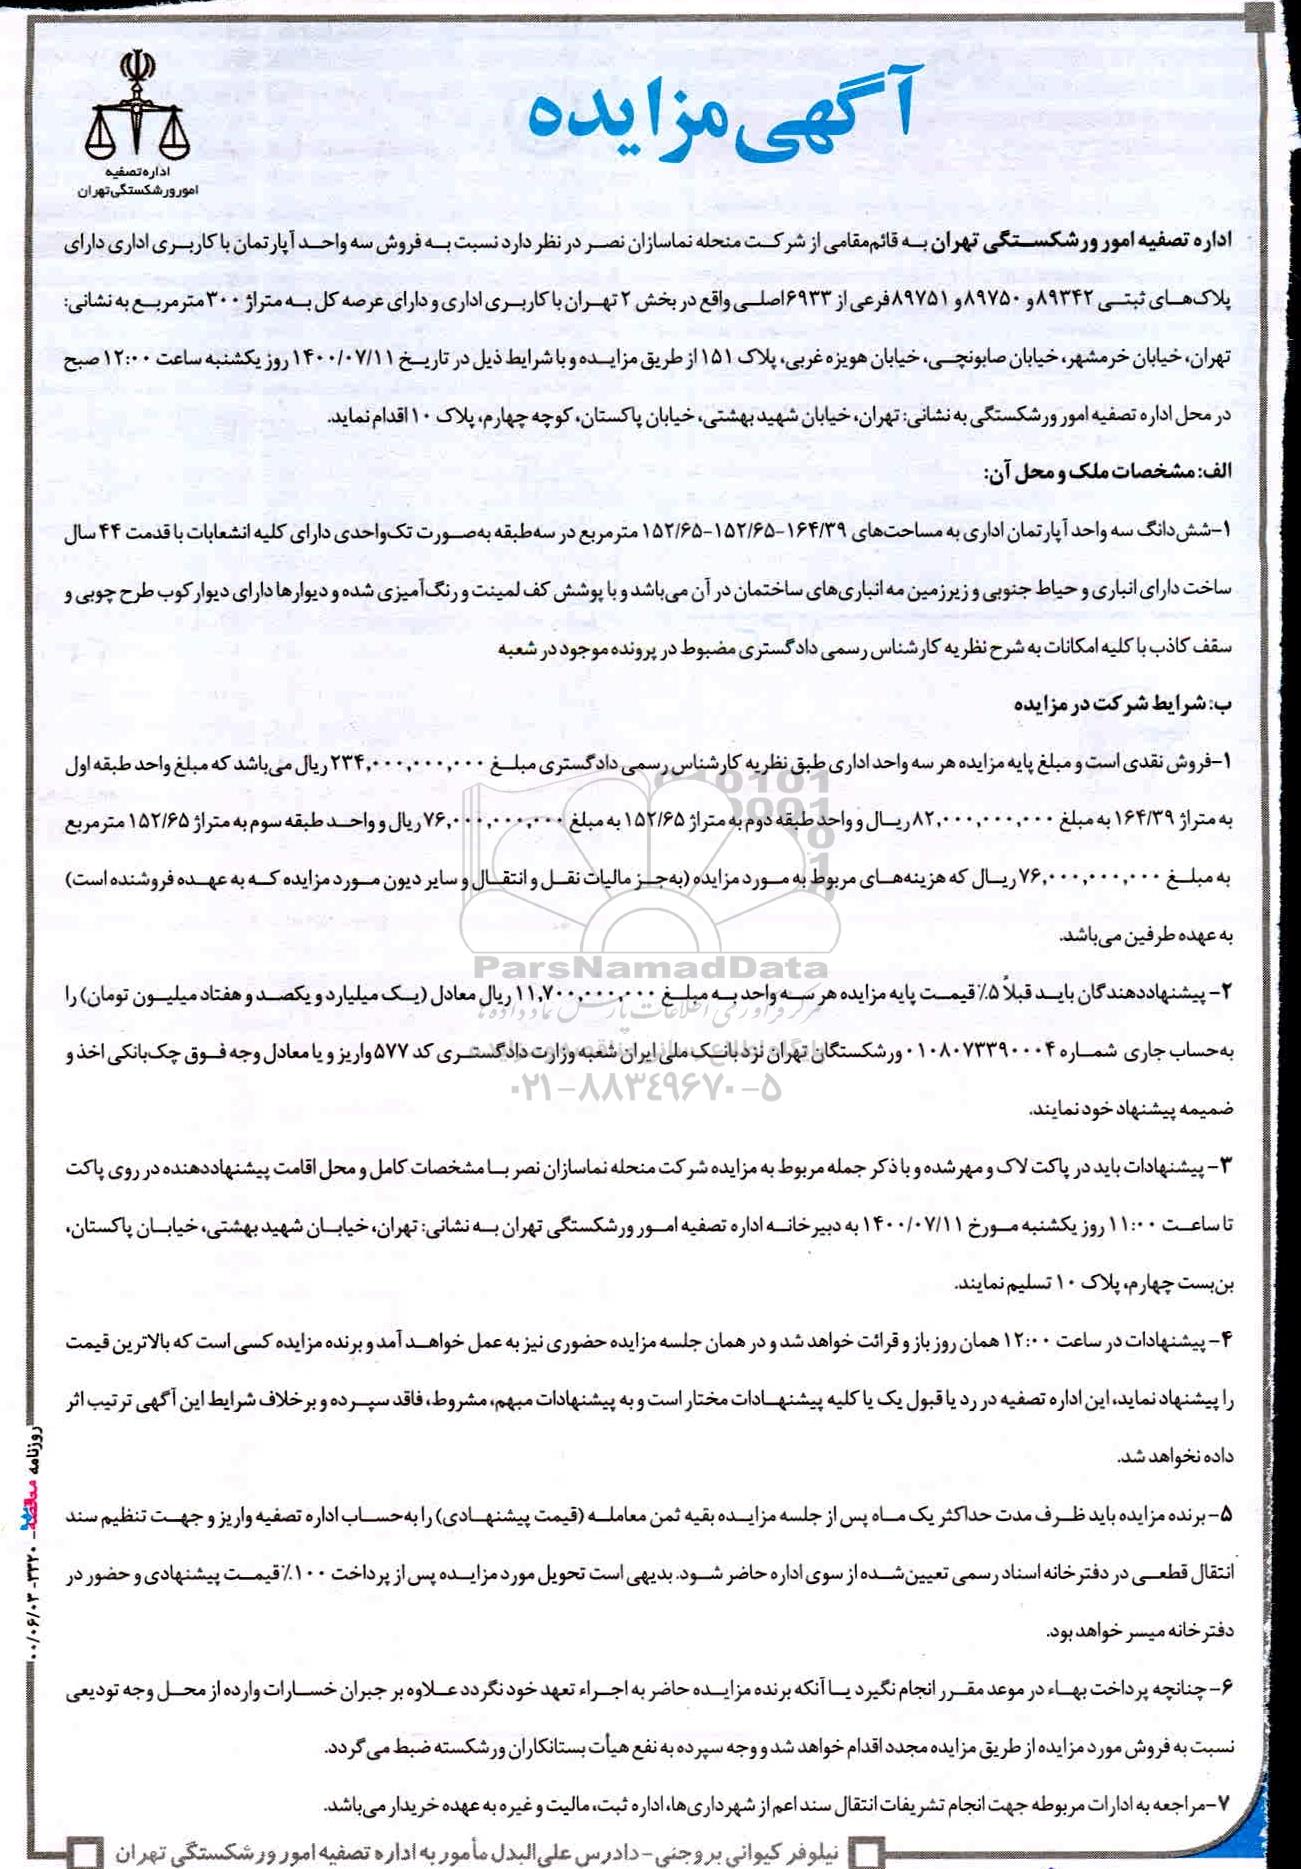 آگهی مزایده
اداره تصفیه
امور ورشکستگی تهران
اداره تصفیه امور ورشکستگی تهران به قائم‌مقامی از شرکت منحله نماسازان نصر در نظر دارد نسبت به فروش سه واحد آپارتمان با کاربری اداری دارای
پلاک‌های ثبتی ۸۹۳۴۲ و ۸۹۷۵۰ و ۸۹۷۵۱ فرعی از ۶۹۳۳ اصلی واقع در بخش ۲ تهران با کاربری اداری و دارای عرصه کل به متراژ ۳۰۰ مترمربع به نشانی:
تهران، خیابان خرمشهر، خیابان صابونچی، خیابان هویزه غربی، پلاک ۱۵۱ از طریق مزایده و با شرایط ذیل در تاریخ ۱۴۰۰/۰۷/۱۱ روز یکشنبه ساعت ۱۲:۰۰ صبح
در محل اداره تصفیه امور ورشکستگی به نشانی: تهران، خیابان شهید بهشتی، خیابان پاکستان، کوچه چهارم، پلاک ۱۰ اقدام نماید.
الف: مشخصات ملک و محل آن:
۱-شش‌دانگ سه واحد آپارتمان اداری به مساحت‌های ۱۶۴/۳۹-۱۵۲/۶۵-۱۵۲/۶۵ مترمربع در سه‌طبقه به‌صورت تک‌واحدی دارای کلیه انشعابات با قدمت ۴۴ سال
ساخت دارای انباری و حیاط جنوبی و زیرزمین مه انباری‌های ساختمان در آن می‌باشد و با پوشش کف لمینت و رنگ‌آمیزی شده و دیوارها دارای دیوارکوب طرح چوبی و
سقف کاذب با کلیه امکانات به شرح نظریه کارشناس رسمی دادگستری مضبوط در پرونده موجود در شعبه
ب: شرایط شرکت در مزایده
۱-فروش نقدی است و مبلغ پایه مزایده هر سه واحد اداری طبق نظریه کارشناس رسمی دادگستری مبلغ ۲۳۴,۰۰۰,۰۰۰,۰۰۰ ریال می‌باشد که مبلغ واحد طبقه اول
به متراژ ۱۶۴/۳۹ به مبلغ ۸۲,۰۰۰,۰۰۰,۰۰۰ ریال و واحد طبقه دوم به متراژ ۱۵۲/۶۵ به مبلغ ۷۶,۰۰۰,۰۰۰,۰۰۰ ریال و واحد طبقه سوم به متراژ ۱۵۲/۶۵ مترمربع
به مبلغ ۷۶,۰۰۰,۰۰۰,۰۰۰ ریال که هزینه‌های مربوط به مورد مزایده (به‌جز مالیات نقل و انتقال و سایر دیون مورد مزایده که به عهده فروشنده است)
به عهده طرفین می‌باشد.
ParsNamadData
۲- پیشنهاددهندگان باید قبلاً ۵٪ قیمت پایه مزایده هر سه واحد به مبلغ ۱۱,۷۰۰,۰۰۰,۰۰۰ ریال معادل (یک میلیارد و یکصد و هفتاد میلیون تومان) را
به‌حساب جاری شماره ۰۱۰۸۰۷۳۳۹۰۰۰۴ ورشکستگان تهران نزد بانک ملی ایران شعبه وزارت دادگستری کد ۵۷۷ واریز و یا معادل وجه فوق چک‌بانکی اخذ و
۰۲۱-۸۸۳۴۹۶۷۰-۵
ضمیمه پیشنهاد خود نمایند.
۳- پیشنهادات باید در پاکت لاک و مهر شده و با ذکر جمله مربوط به مزایده شرکت منحله نماسازان نصر با مشخصات کامل و محل اقامت پیشنهاددهنده در روی پاکت
تا ساعت ۱۱:۰۰ روز یکشنبه مورخ ۱۴۰۰/۰۷/۱۱ به دبیرخانه اداره تصفیه امور ورشکستگی تهران به نشانی: تهران، خیابان شهید بهشتی، خیابان پاکستان،
بن‌بست چهارم، پلاک ۱۰ تسلیم نمایند.
۴- پیشنهادات در ساعت ۱۲:۰۰ همان روز باز و قرائت خواهد شد و در همان جلسه مزایده حضوری نیز به عمل خواهد آمد و برنده مزایده کسی است که بالاترین قیمت
را پیشنهاد نماید، این اداره تصفیه در رد یا قبول یک یا کلیه پیشنهادات مختار است و به پیشنهادات مبهم، مشروط، فاقد سپرده و برخلاف شرایط این آگهی ترتیب اثر
داده نخواهد شد.
۵- برنده مزایده باید ظرف مدت حداکثر یک ماه پس از جلسه مزایده بقیه ثمن معامله (قیمت پیشنهادی) را به‌حساب اداره تصفیه واریز و جهت تنظیم سند
انتقال قطعی در دفترخانه اسناد رسمی تعیین‌شده از سوی اداره حاضر شود. بدیهی است تحویل مورد مزایده پس از پرداخت ۱۰۰٪ قیمت پیشنهادی و حضور در
دفترخانه میسر خواهد بود.
۶- چنانچه پرداخت بهاء در موعد مقرر انجام نگیرد یا آنکه برنده مزایده حاضر به اجراء تعهد خود نگردد علاوه بر جبران خسارات وارده از محل وجه تودیعی
نسبت به فروش مورد مزایده از طریق مزایده مجدد اقدام خواهد شد و وجه سپرده به نفع هیأت بستانکاران ورشکسته ضبط می گردد.
۷-مراجعه به ادارات مربوطه جهت انجام تشریفات انتقال سند اعم از شهرداری‌ها، اداره ثبت، مالیت و غیره به عهده خریدار می‌باشد.
نیلوفر کیوانی بروجنی-دادرس علی‌البدل مأمور به اداره تصفیه امور ورشکستگی تهران
روزنامه مناقصه - ۳۳۲۰ - ۰۰/۰۶/۰۳